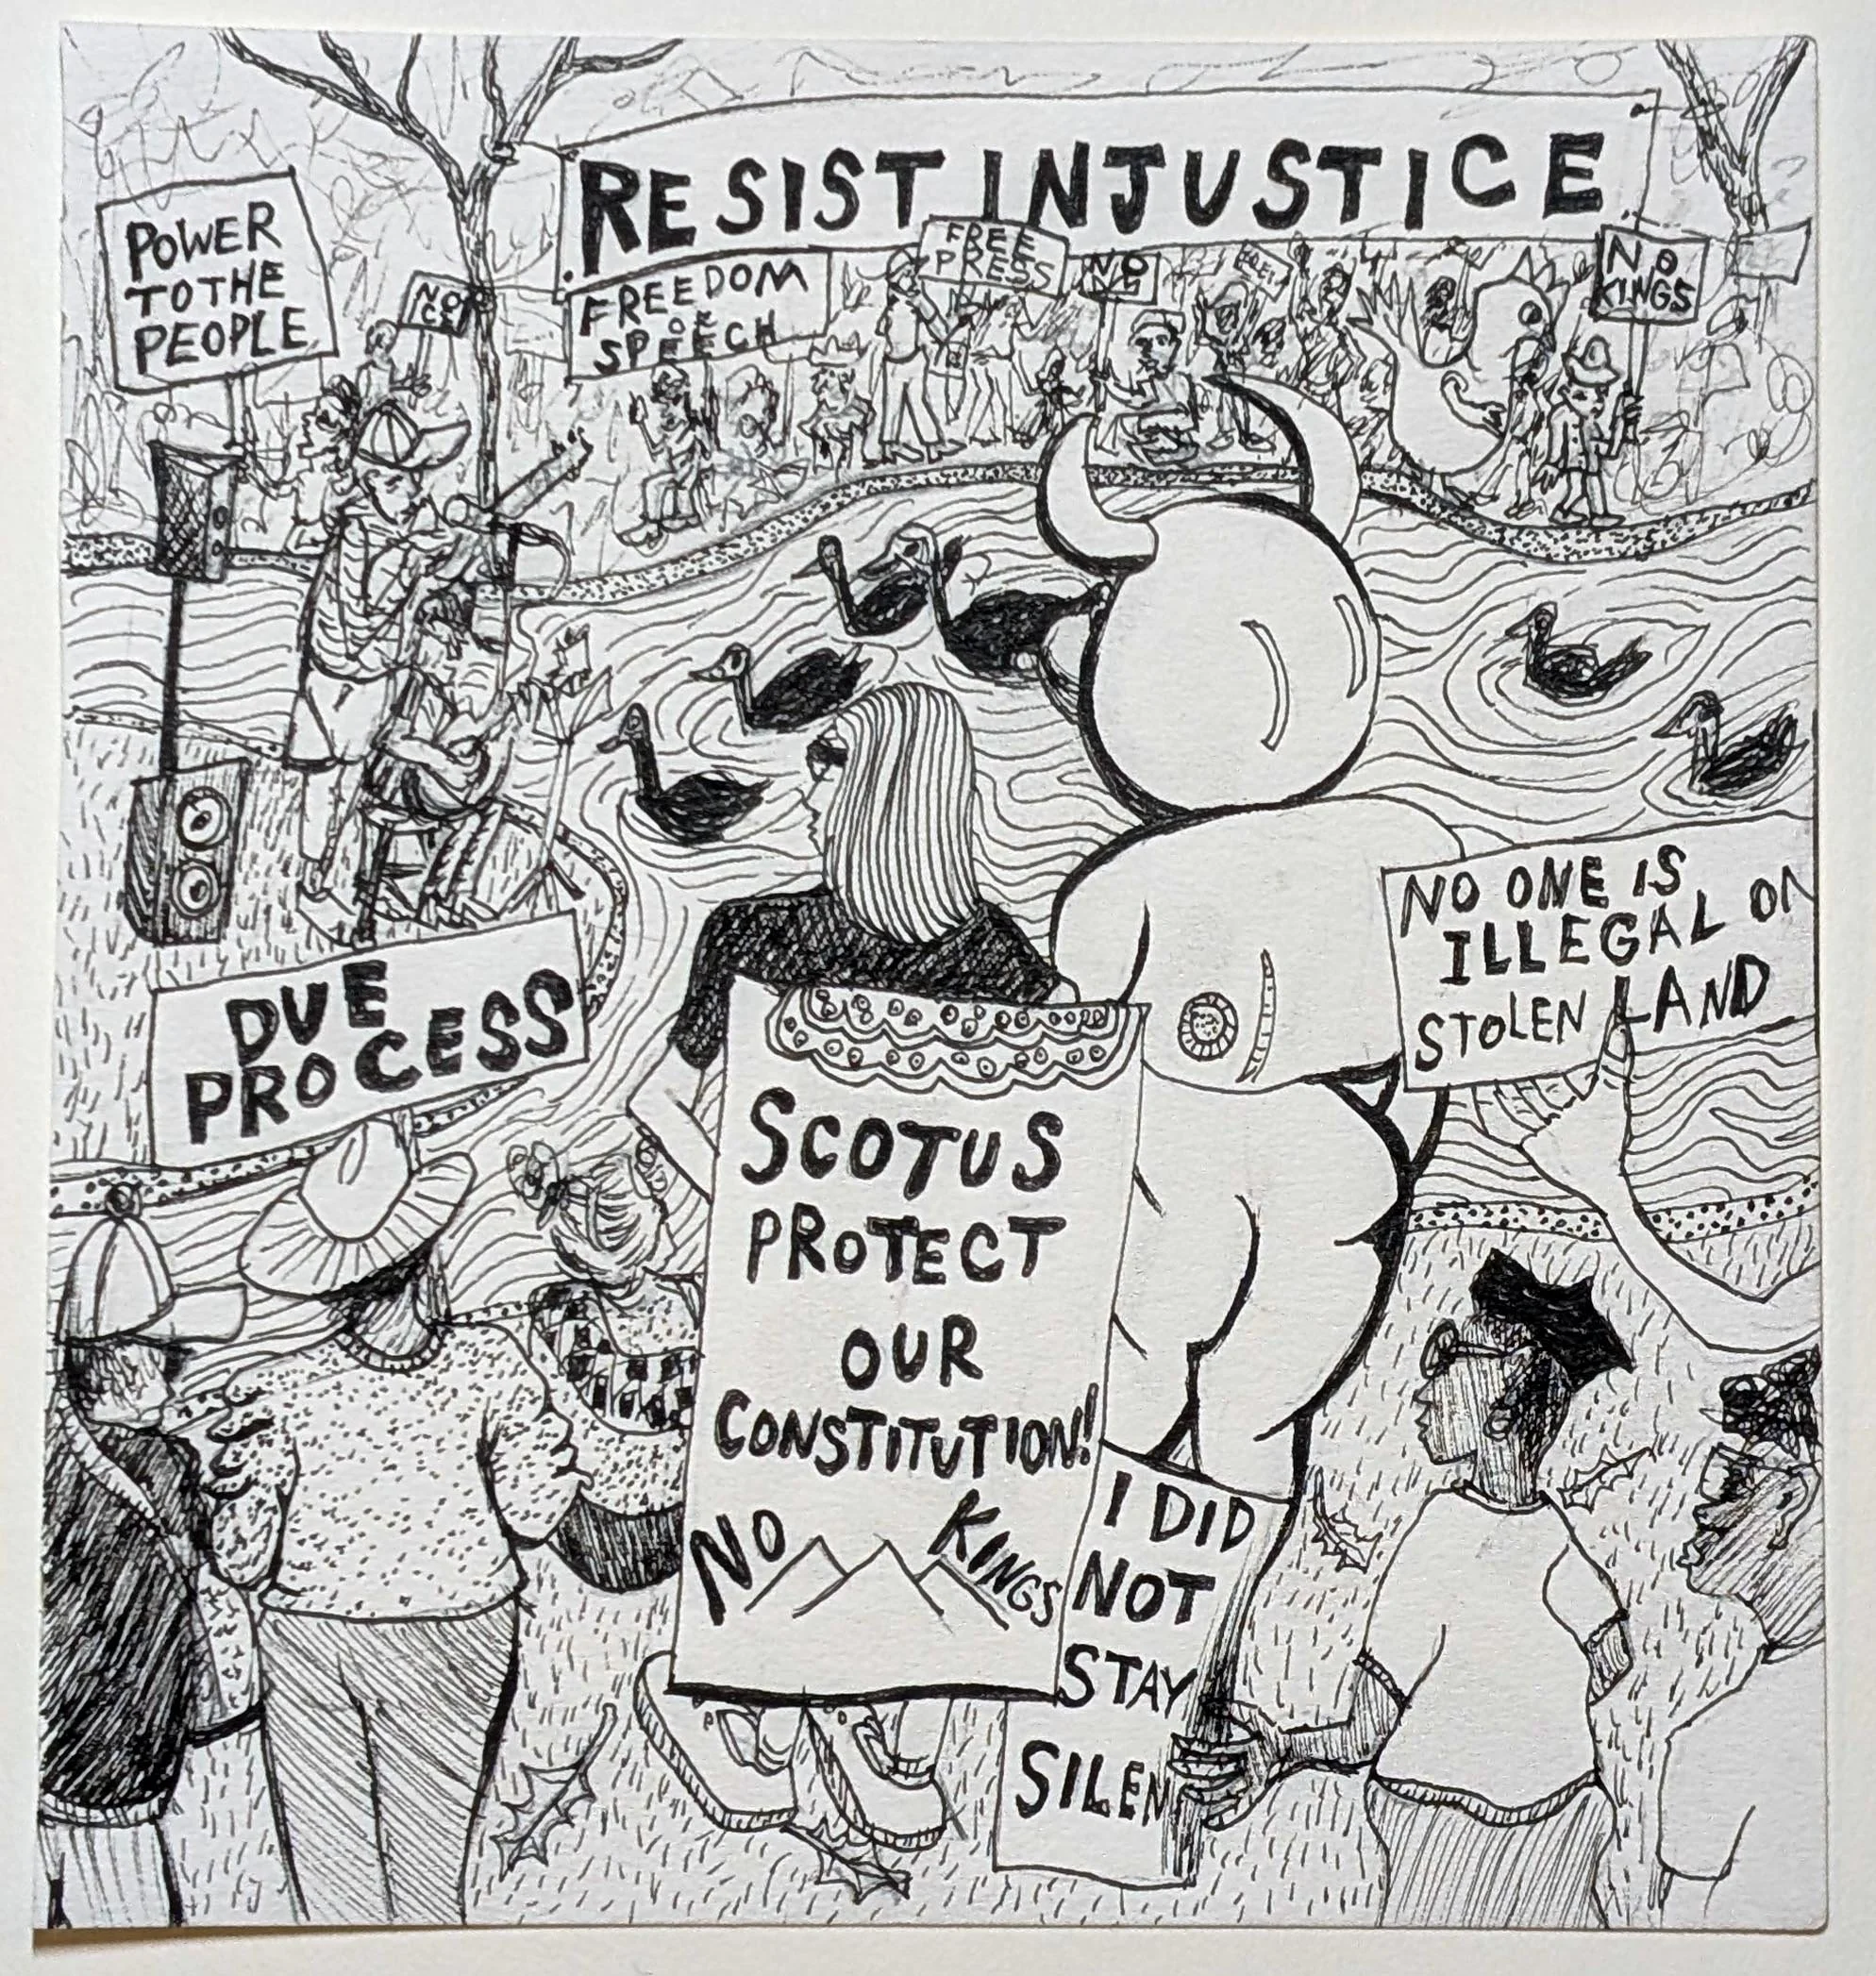 RESIST INJUSTICE
POWER
TO THE
PEOPLE
NO
FREEDOM
OF
SPEECH
FREE
PRESS
NO
NO
KINGS
NO ONE IS
ILLEGAL ON
STOLEN LAND
DUE
PROCESS
SCOTUS
PROTECT
OUR
CONSTITUTION!
NO KINGS
I DID
NOT
STAY
SILEN